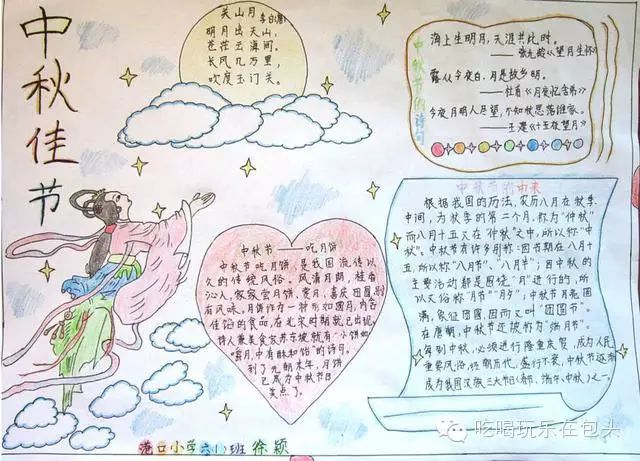 中秋佳节
关山月 李白(唐)
明月出天山，
苍茫云海间。
长风几万里，
吹度玉门关。
中秋节的诗句
海上生明月，天涯共此时。
——张九龄《望月怀远》
露从今夜白，月是故乡明。
——杜甫《月夜忆舍弟》
今夜月明人尽望，不知秋思落谁家。
——王建《十五夜望月》
中秋节——吃月饼
中秋节吃月饼，是我国流传以
久的传统风俗。风清月朗，桂香
沁人，家家尝月饼，赏月，喜庆团圆，别
有风味。月饼作为一种形如圆月，内含
佳馅的食品，在北宋时期就已出现。
诗人兼美食家苏东坡就有"小饼如
嚼月，中有酥和饴"的诗句。
到了元朝末年，月饼
已成为中秋节日
美点了。
中秋节的由来
根据我国的历法，农历八月在秋季
中间，为秋季的第二个月，称为"仲秋"
而八月十五又在"仲秋"之中，所以称"中
秋"。中秋节有许多别称：因节期在八月十
五，所以称"八月节"、"八月半"；因中秋的
主要活动都是围绕"月"进行的，所
以又俗称"月节""月夕"；中秋节月亮圆
满，象征团圆，因而又叫"团圆节"。
在唐朝，中秋节还被称为"端月节"。
每到中秋，必须进行隆重庆贺，成为人民
重要风俗，经朝历代，盛行不衰，中秋节还逐渐
成为我国汉族三大节日(春节、端午、中秋)之一。
港口小学六(1)班 徐颖
吃喝玩乐在包头